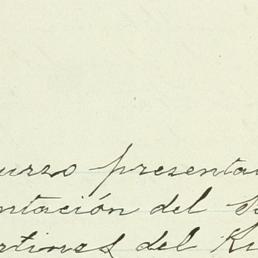 urso presenta
ntación del
rtines del